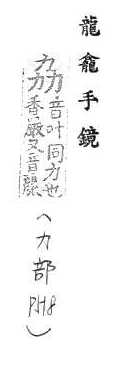 龍龕手鏡
劦音叶同力也香嚴又音麗
(力部 P518)